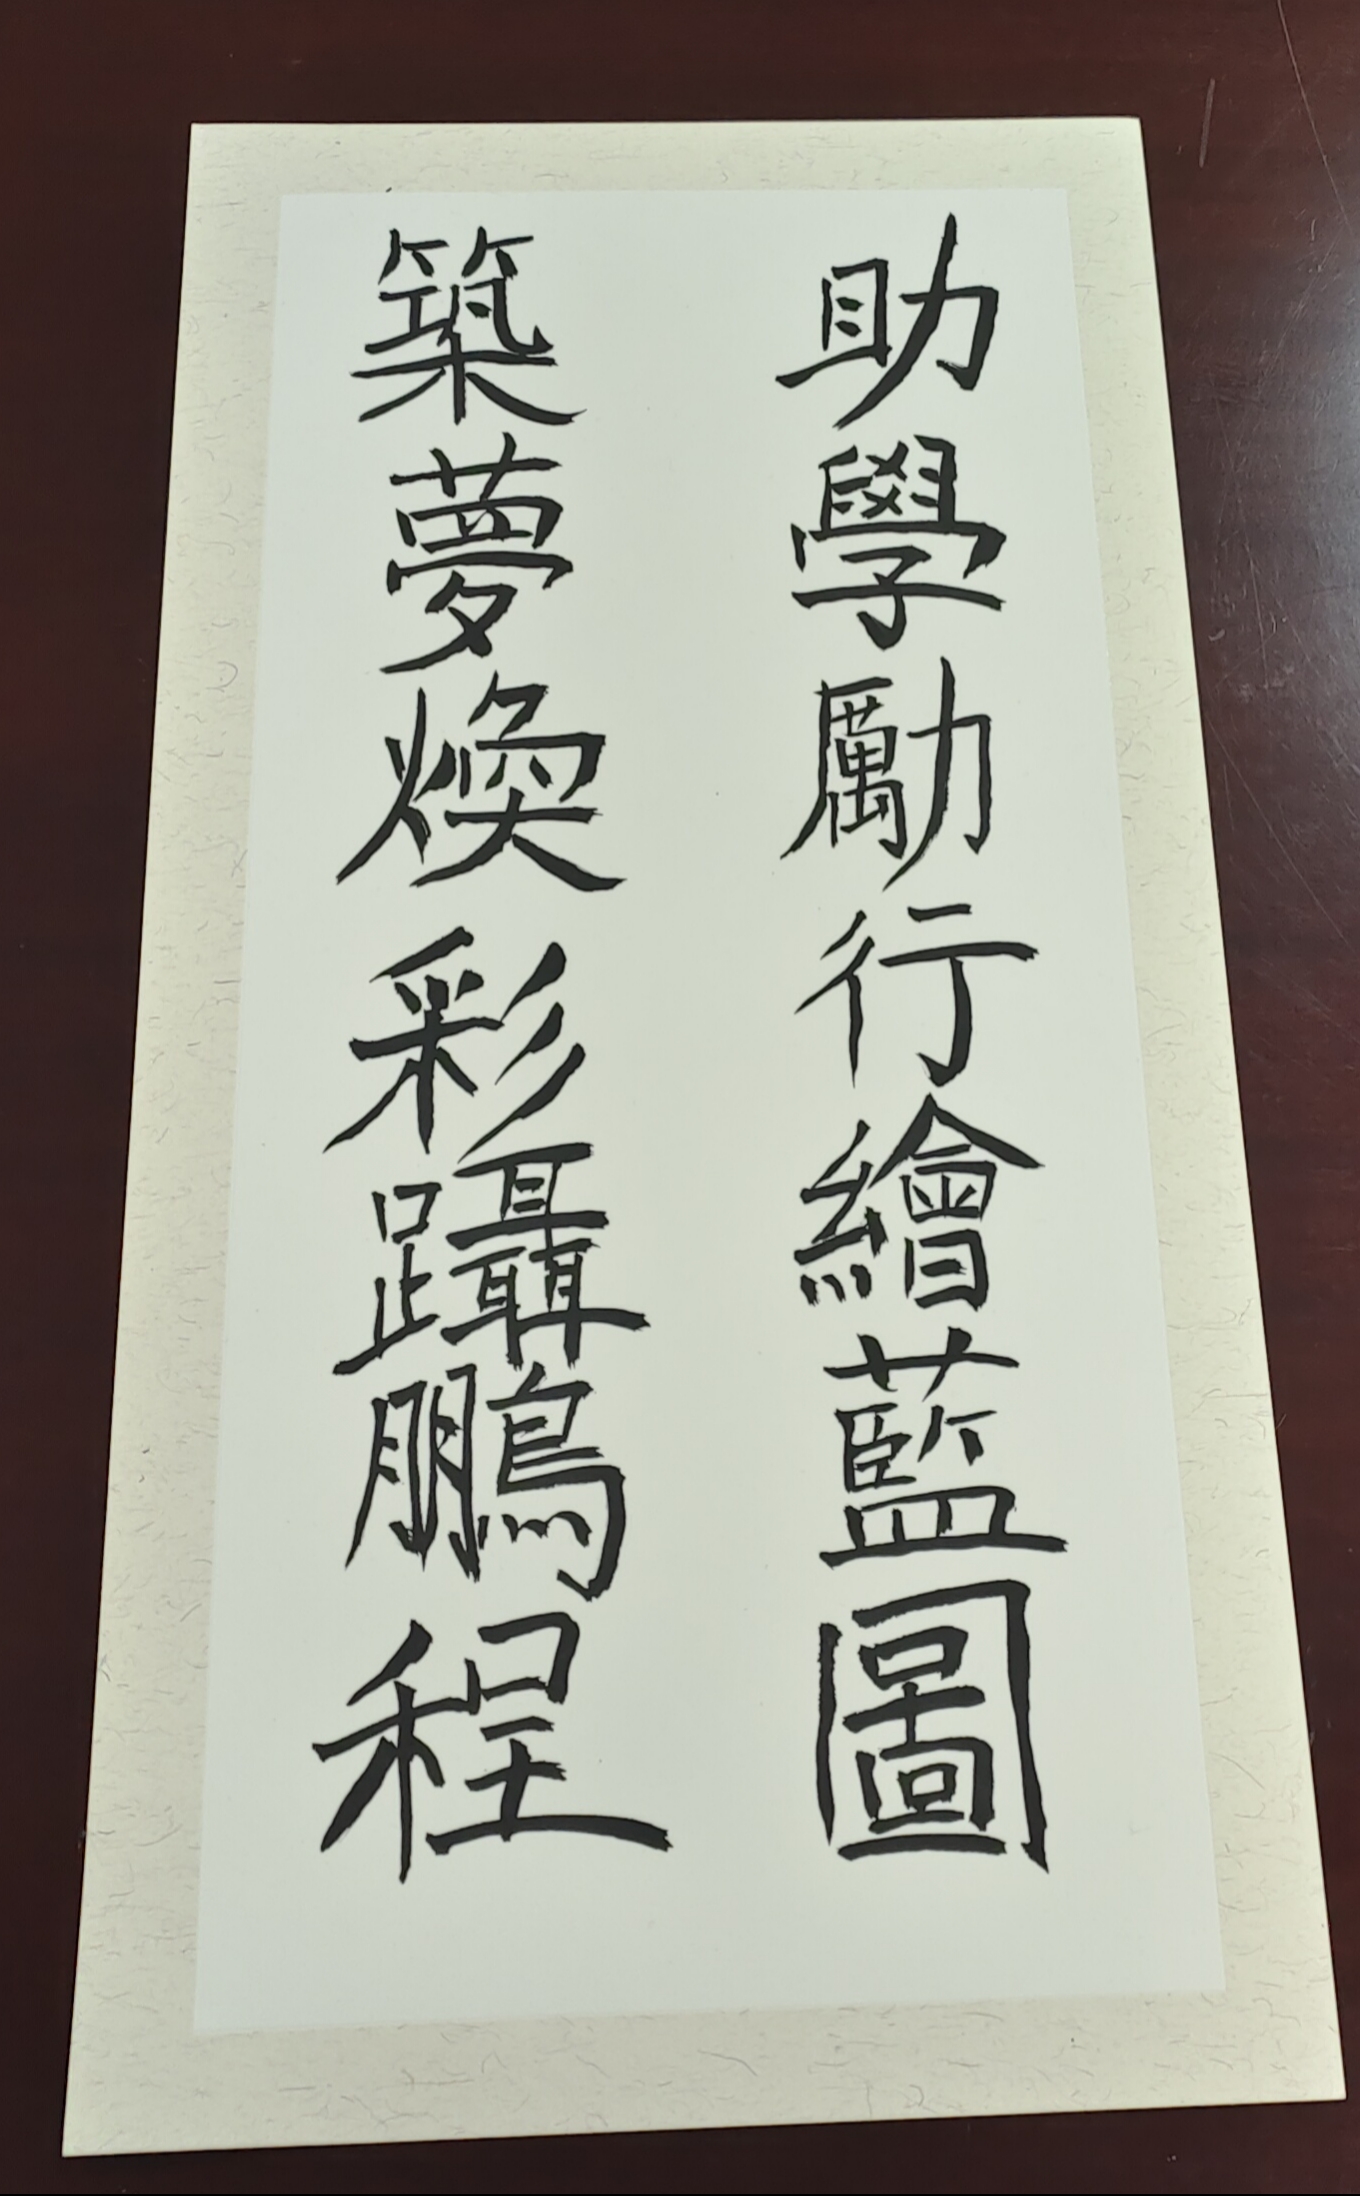 助學勵行繪藍圖
築夢煥彩躡鵬程